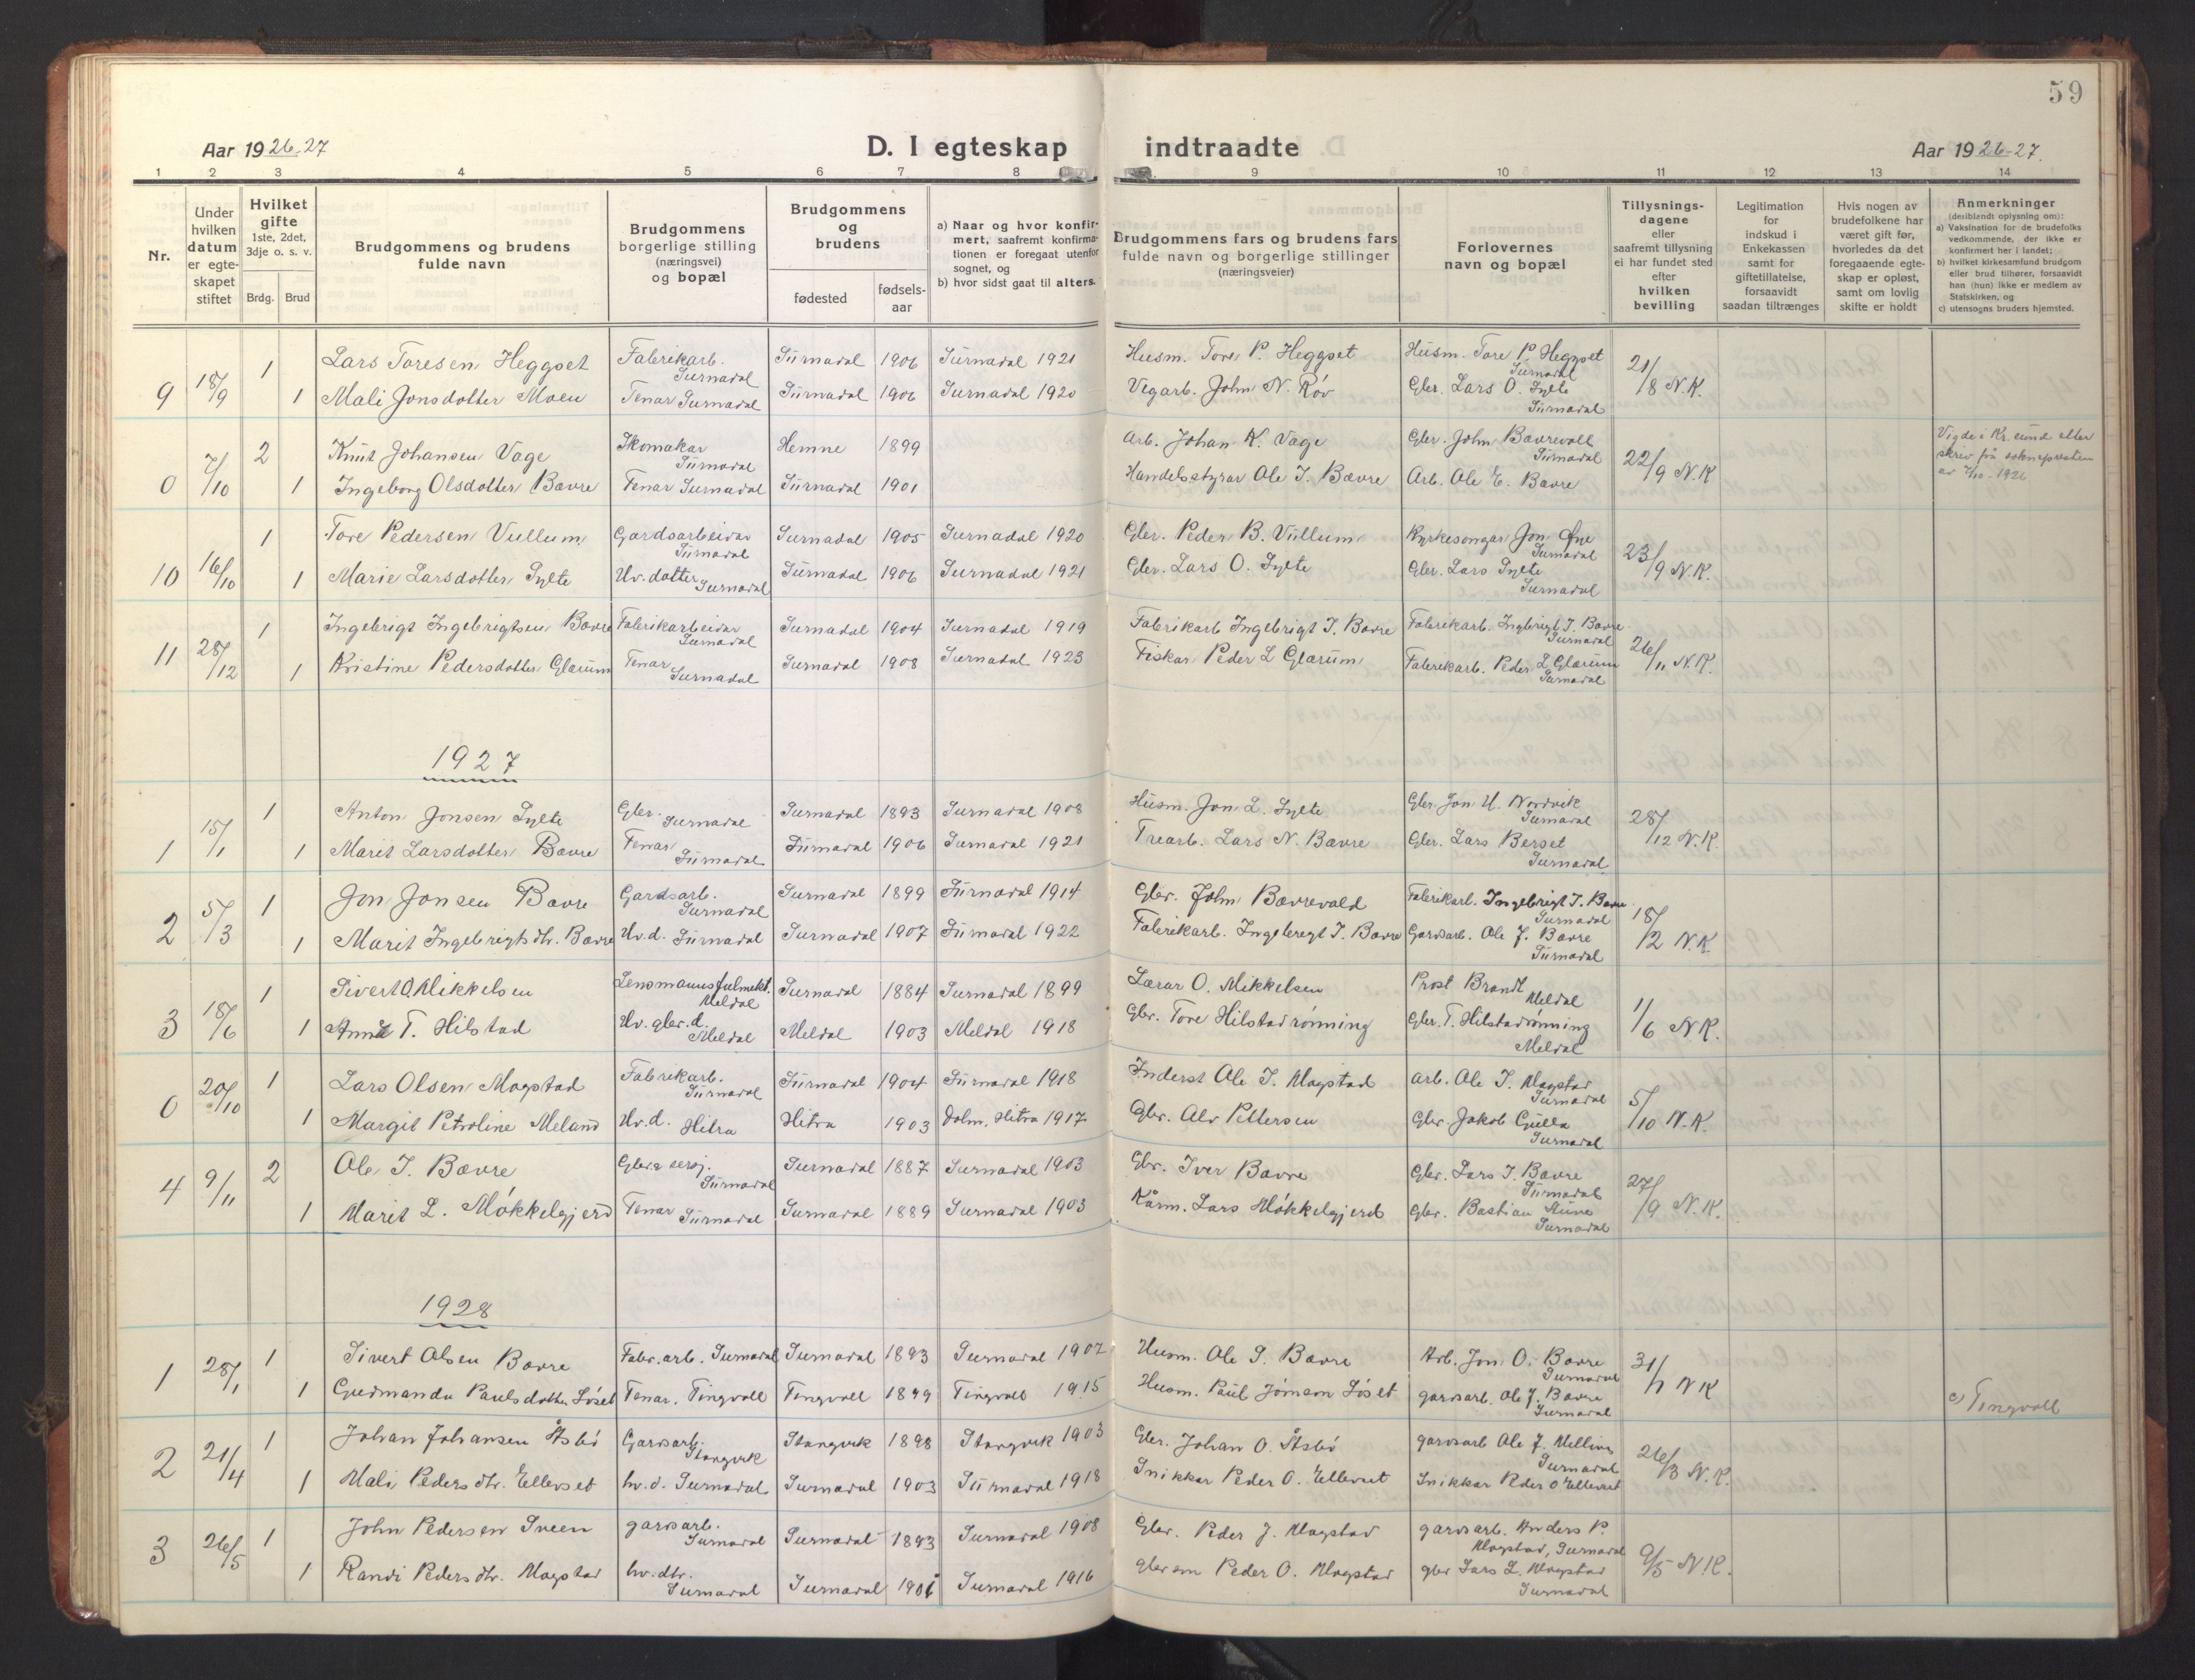 59
Aar 1926-27
D. I egteskap indtraadte
Aar 1926-27.
1 2 3 4 5 6 7 8 9 10 11 12 13 14
Nr.
Under hvilken datum er egteskapet stiftet
Hvilket gifte 1ste, 2det, 3dje o. s. v.
Brdg. Brud
Brudgommens og brudens fulde navn
Brudgommens borgerlige stilling (næringsvei) og bopæl
Brudgommens og brudens
fødested
fødselsaar
a) Naar og hvor konfirmert, saafremt konfirmationen er foregaat utenfor sognet, og
b) hvor sidst gaat til alters.
Brudgommens fars og brudens fars fulde navn og borgerlige stillinger (næringsveier)
Forlovernes navn og bopæl
Tillysningsdagene eller saafremt tillysning ei har fundet sted efter hvilken bevilling
Legitimation for indskud i Enkekassen samt for giftetillatelse, forsaavidt saadan tiltrænges
Hvis nogen av brudefolkene har været gift før, hvorledes da det foregaaende egteskap er opløst, samt om lovlig skifte er holdt
Anmerkninger (deriblandt oplysning om):
a) Vaksination for de brudefolks vedkommende, der ikke er konfirmert her i landet;
b) hvilket kirkesamfund brudgom eller brud tilhører, forsaavidt han (hun) ikke er medlem av Statskirken, og
c) utensogns bruders hjemsted.
9 18/9 1 Lars Toresen Heggset Fabrikarb. Surnadal Surnadal 1906 Surnadal 1921 Husm. Tore P. Heggset Husm. Tore P. Heggset Surnadal 21/8 N.K.
1 Mali Jonsdotter Moen Tenar Surnadal Surnadal 1906 Surnadal 1920 Vegarb. John N. Røv Gbr. Lars O. Sylte Surnadal
0 7/10 2 Knut Johansen Vage Skomakar Surnadal Hemne 1899 Arb. Johan K. Vage Gbr. John Bævrevoll Surnadal 22/9 N.K Vigde i Kr.sund etter skriv frå soknepresten av 7/10-1926
1 Ingeborg Olsdotter Bævre Tenar Surnadal Surnadal 1901 Handelsstyrar Ole I. Bævre Arb. Ole E. Bævre
10 16/10 1 Tore Pedersen Vullum Gardsarbeidar Surnadal Surnadal 1905 Surnadal 1920 Gbr. Peder B. Vullum Kyrkesongar Jon Øye Surnadal 23/9 N.K.
1 Marie Larsdotter Sylte Hv. dotter Surnadal Surnadal 1906 Surnadal 1921 Gbr. Lars O. Sylte Gbr. Lars Sylte Surnadal
11 28/12 1 Ingebrigt Ingebrigtsen Bævre Fabrikarbeidar Surnadal Surnadal 1904 Surnadal 1919 Fabrikarb Ingebrigt I. Bævre Fabrikarb. Ingbrigt I. Bævre Surnadal 26/11 N.K.
1 Kristine Pedersdotter Glærum Tenar Surnadal Surnadal 1908 Surnadal 1923 Fiskar Peder L Glærum Fabrikarb. Peder L Glærum Surnadal
1927
1 15/1 1 Anton Jonsen Sylte Gbr. Surnadal Surnadal 1893 Surnadal 1908 Husm. Jon L. Sylte Gbr. Jon H. Nordvik Surnadal 28/12 N.K.
1 Marit Larsdotter Bævre Tenar Surnadal Surnadal 1906 Surnadal 1921 Trearb. Lars N. Bævre Gbr. Lars Berset Surnadal
2 5/3 1 Jon Jonsen Bævre Gardsarb. Surnadal Surnadal 1899 Surnadal 1914 Gbr. John Bævrevold Fabrikarb. Ingebrigt I. Bævre Surnadal 18/2 N.K.
1 Marit Ingebrigtsdtr. Bævre Hv.d. Surnadal Surnadal 1907 Surnadal 1922 Fabrikarb. Ingebrigt I. Bævre Gardsarb. Ole J. Bævre Surnadal
3 18/6 1 Sivert O. Mikkelsen Lensmannsfulmekt. Meldal Surnadal 1884 Surnadal 1899 Lærar O. Mikkelsen Prost Brandt Meldal 1/6 N.K.
1 Anne T. Hilstad Hv. gbr.d. Meldal Meldal 1903 Meldal 1918 Gbr. Tore Hilstadrønning Gbr. T. Hilstadrønning Meldal
0 20/10 1 Lars Olsen Mogstad Fabrikarb. Surnadal Surnadal 1904 Surnadal 1918 Inderst Ole I. Mogstad arb. Ole I. Mogstad Surnadal 5/10 N.K.
1 Margit Petroline Meland Hv.d. Hitra Hitra 1903 Dolm. Hitra 1917 Gbr. Alv Pettersen Gbr Jakob Gulla Surnadal
4 9/11 2 Ole I. Bævre Gbr. & sersj. Surnadal Surnadal 1887 Surnadal 1903 Gbr. Iver Bævre Gbr. Lars I. Bævre Surnadal 27/9 N.K.
1 Marit L. Møkkelgjerd Tenar Surnadal Surnadal 1889 Surnadal 1903 Kårm. Lars Møkkelgjerd Gbr. Bastian Aune Surnadal
1928
1 28/1 1 Sivert Olsen Bævre Fabr.arb. Surnadal Surnadal 1893 Surnadal 1907 Husm. Ole S. Bævre Arb. Jon O. Bævre Surnadal 31/1 N K
1 Gudmanda Paulsdotter Løset Tenar. Tingvoll Tingvoll 1899 Tingvoll 1915 Husm. Paul Jonsen Løset gardsarb. Ole J. Bævre Surnadal c) Tingvoll
2 21/4 1 Johan Johansen Åsbø Gardsarb. Stangvik Stangvik 1898 Stangvik 1903 Gbr. Johan O. Åsbø gardsarb Ole J. Mellim Surnadal 26/3 N.K.
1 Mali Pedersdtr. Ellevset hv.d. Surnadal Surnadal 1903 Surnadal 1918 Snikkar Peder O. Ellevset Snikkar Peder O Ellevset
3 26/5 1 John Pedersen Sveen gardsarb. Surnadal Surnadal 1893 Surnadal 1908 Gbr. Peder J. Mogstad gardsarb. Anders P. Mogstad, Surnadal 9/5 N.K.
1 Randi Pedersdtr. Mogstad hv.dtr. Surnadal Surnadal 1901 Surnadal 1916 Peder O. Mogstad gbr Lars L. Mogstad Surnadal